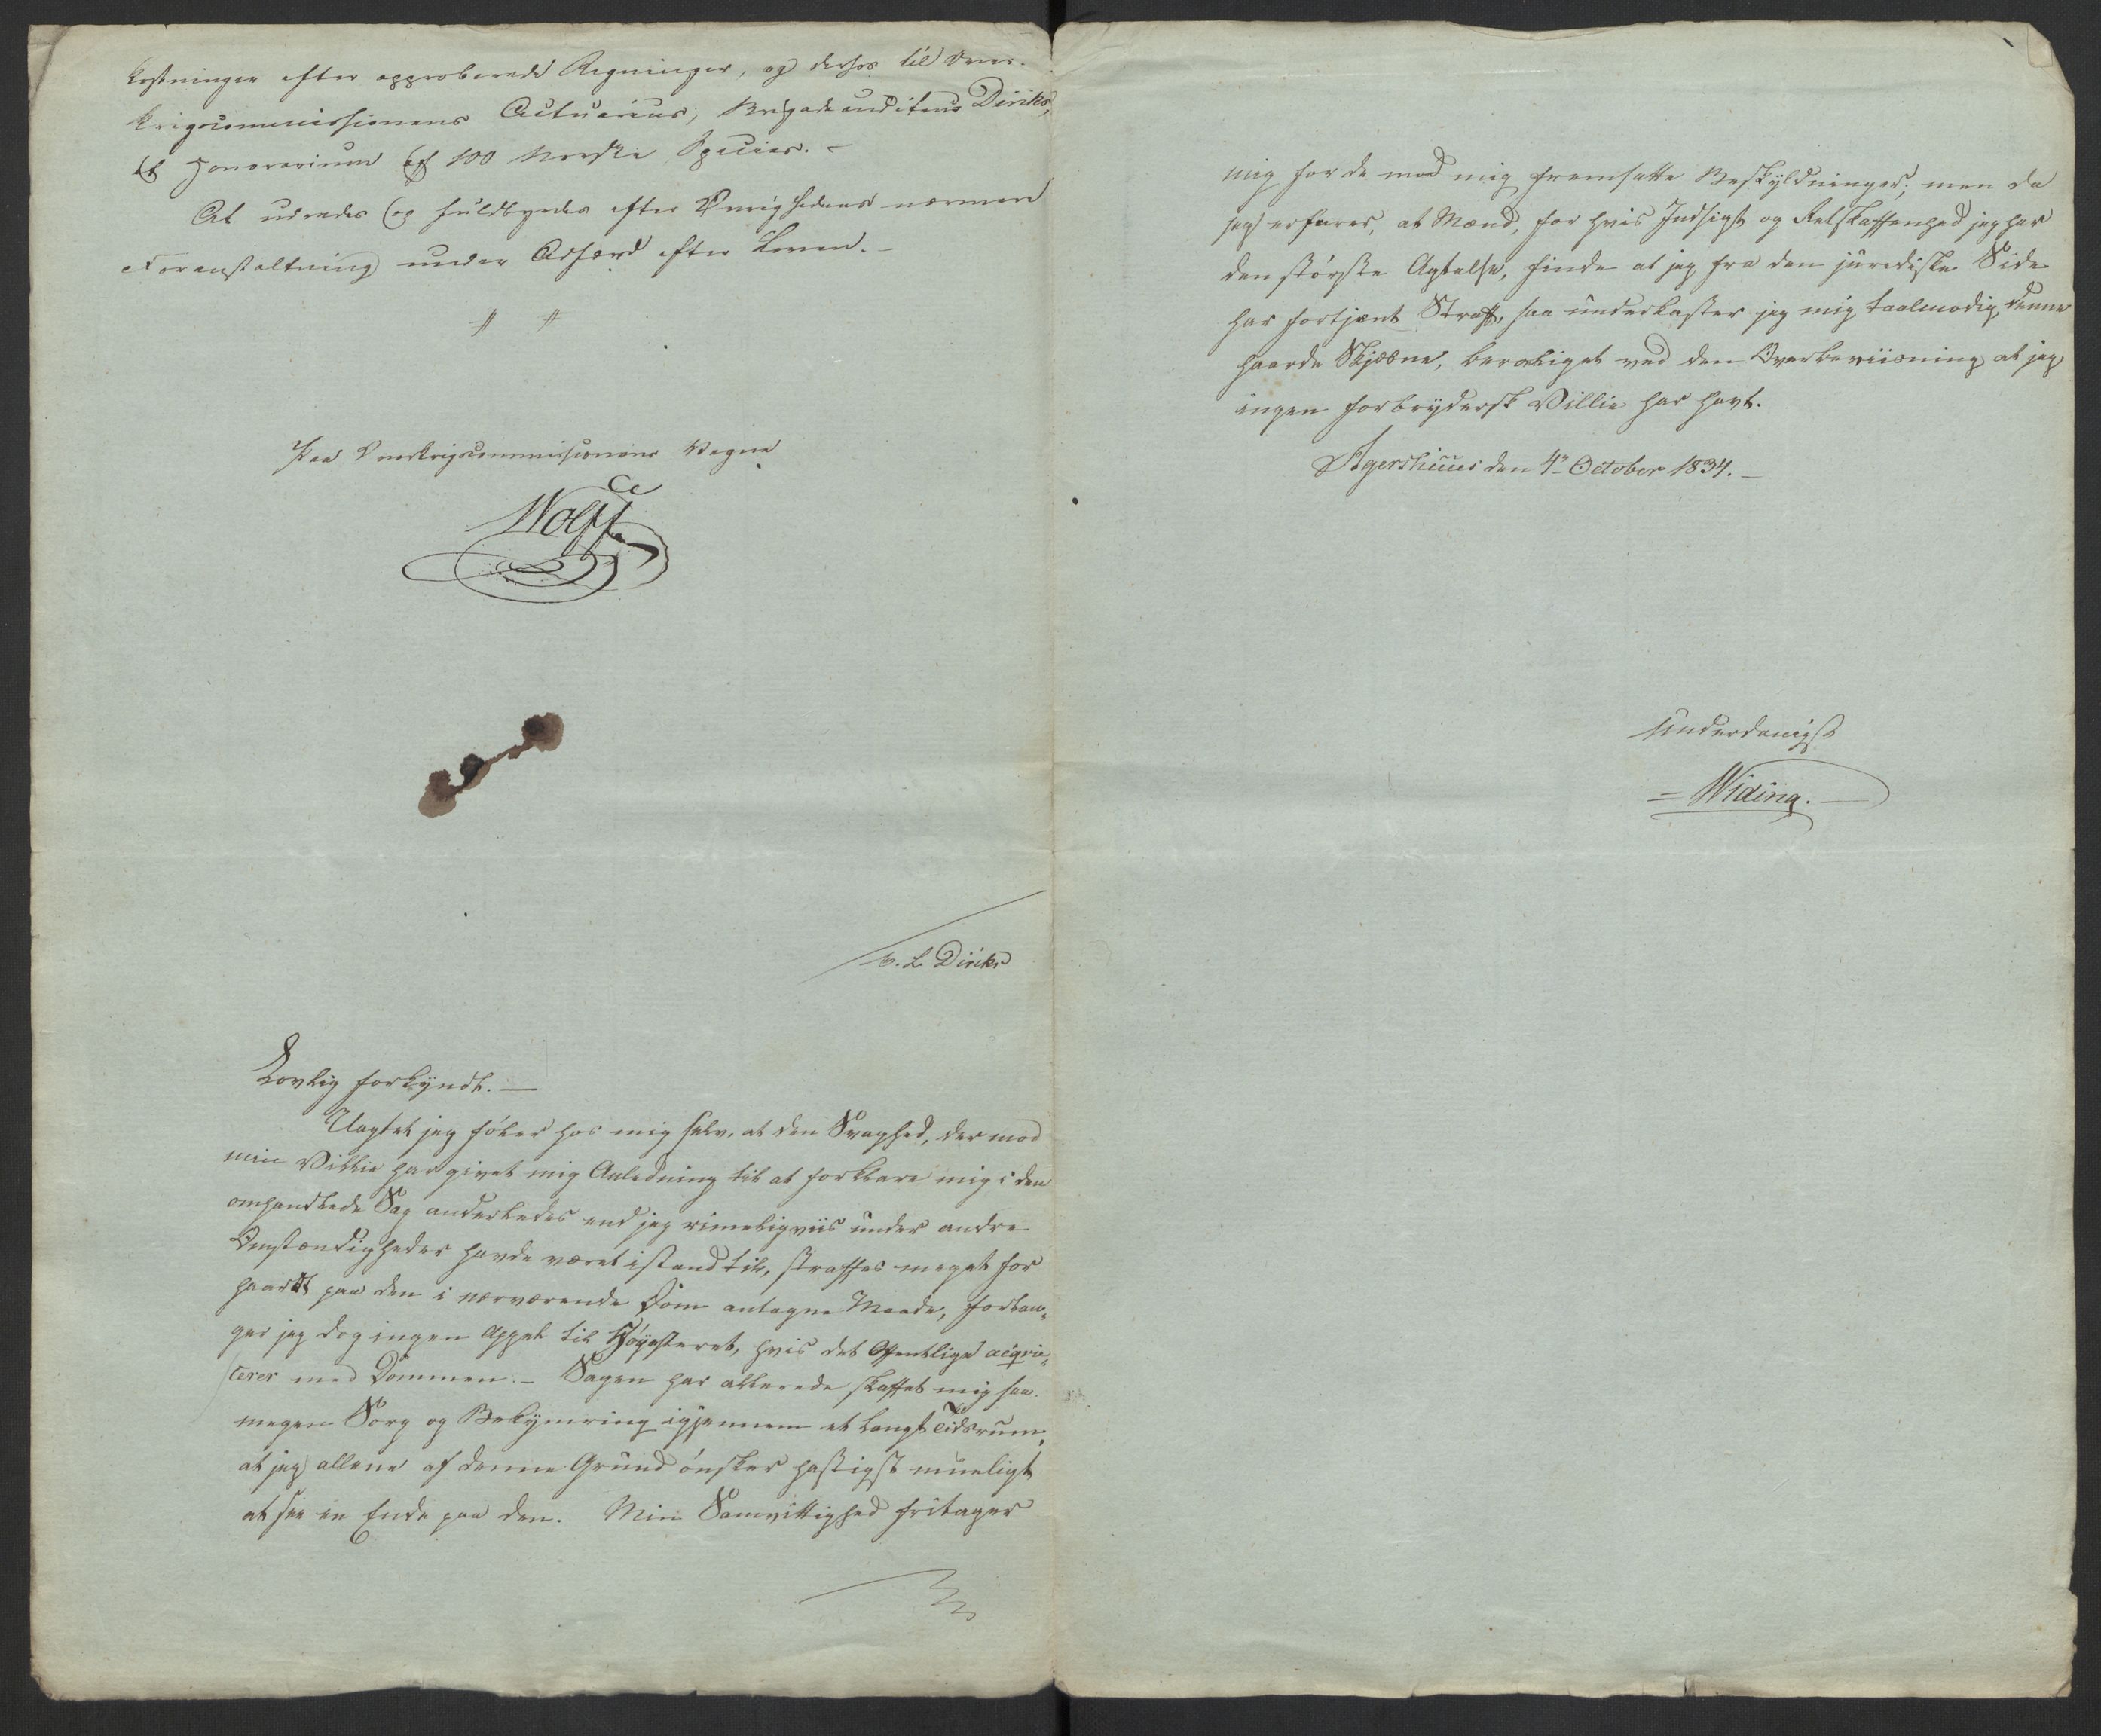 kostninger efter approberede Regninger, og derhos til Over-
krigscommissionens Actuarius, Brigadeauditeur Diriks,
et Honorarium af 100 Norske Species. -
At udredes og fuldbyrdes efter Øvrighedens nærmere
Foranstaltning under Adfærd efter Loven. -
Paa Overkrigscommissionens Vegne
Wolff.
C. L. Diriks
Lovlig forkyndt. —
Uagtet jeg föler hos mig selv, at den Svaghed, der mod
min Villie har givet mig Anledning til at forklare mig i den
omhandlede Sag anderledes end jeg rimeligviis under andre
Omstændigheder havde været istand til, straffes meget for
haardt paa den i nærværende Dom antagne Maade, forlan-
ger jeg dog ingen Appel til Höyesteret, hvis det Offentlige acqvie-
cerer med Dommen. - Sagen har allerede skaffet mig saa
megen Sorg og Bekymring igjennem et langt Tidsrum,
at jeg allene af denne Grund önsker hastigst mueligt
at see en Ende paa den. Min Samvittighed fritager
mig for de mod mig fremsatte Beskyldninger; men da
jeg erfarer, at Mænd, for hvis Indsigt og Retskaffenhed jeg har
den störste Agtelse, finde at jeg fra den juridiske Side
har fortjent Straff, saa underkaster jeg mig taalmodig denne
haarde Skjæbne, beroliget ved den Overbeviisning at jeg
ingen forbrydersk Villie har havt.
Agershuus den 4de October 1834. —
Underdanigst
= Widing. —